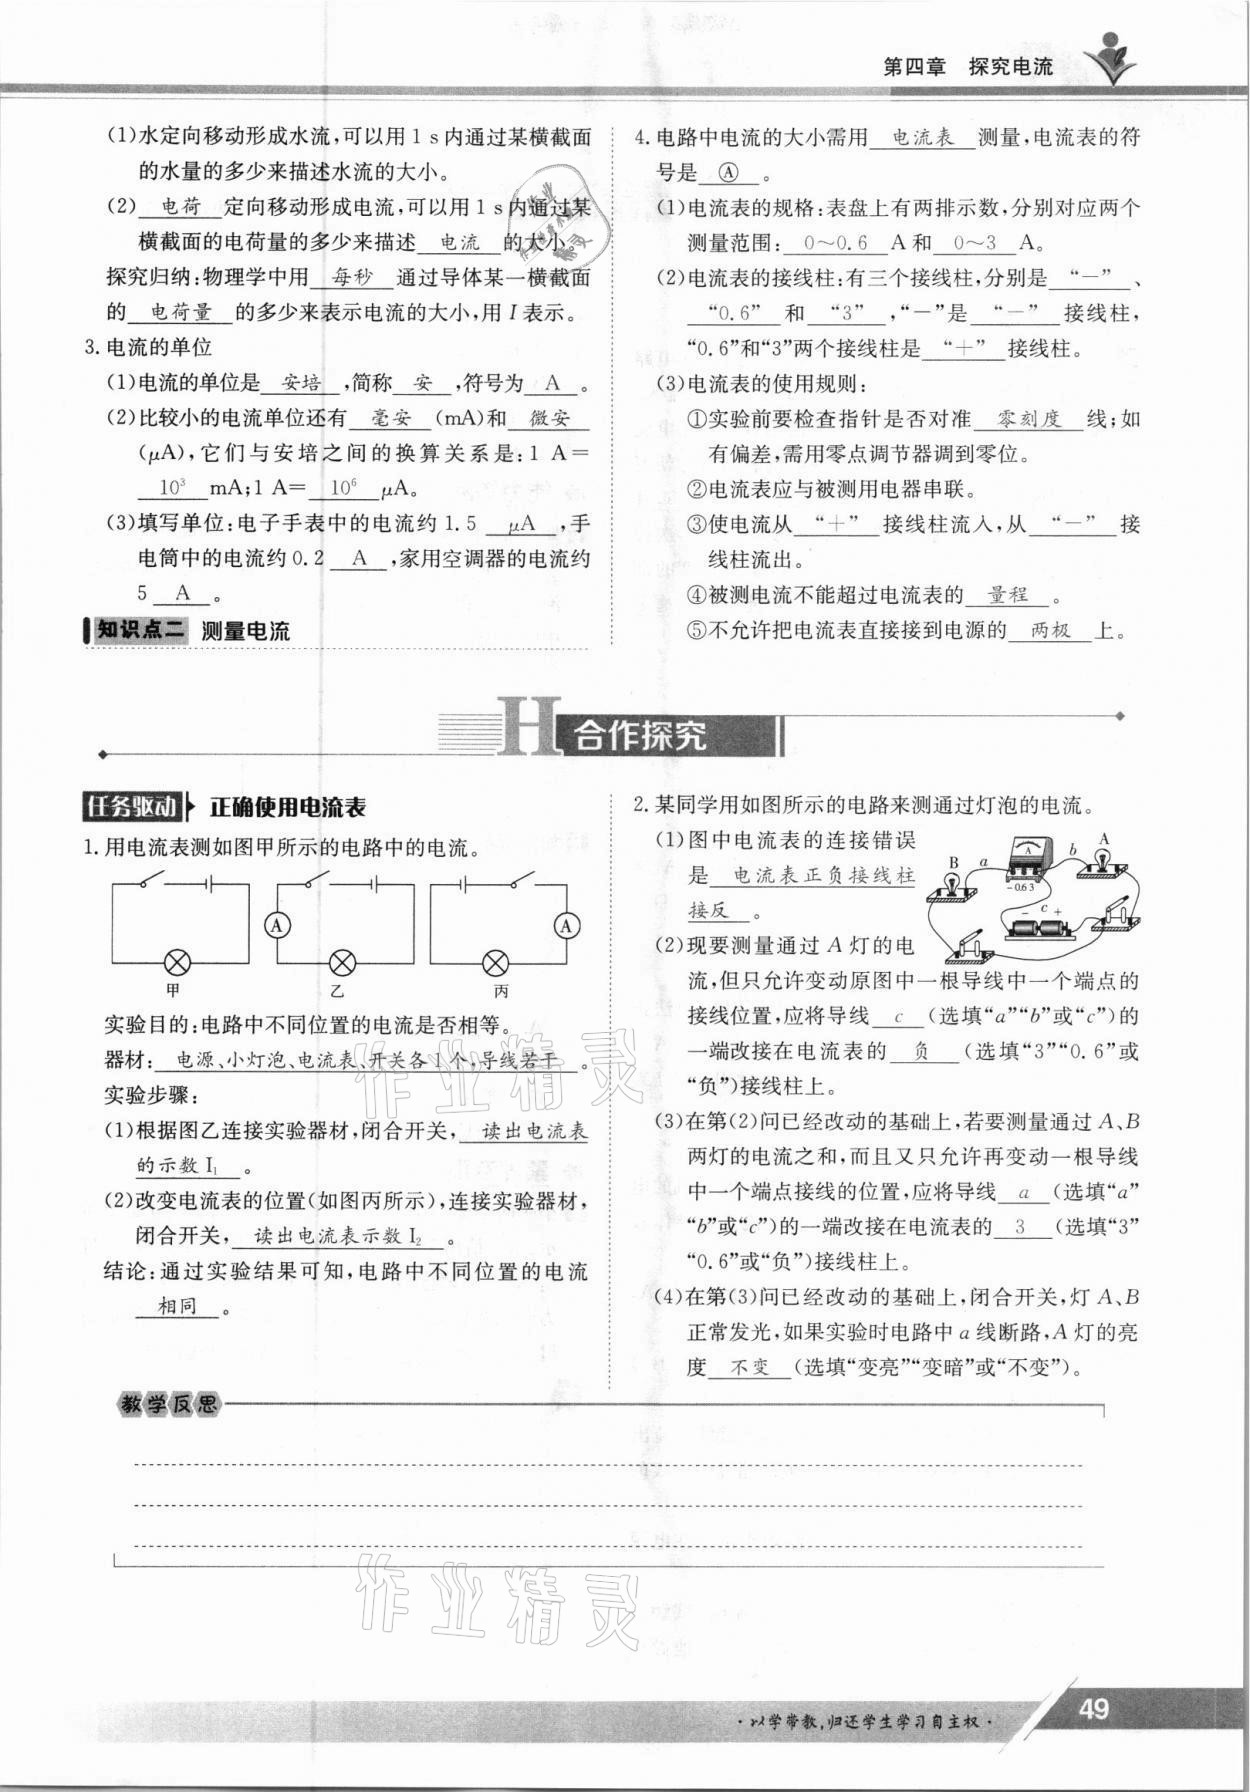 第四章 探究电流
(1)水定向移动形成水流,可以用1 s内通过某横截面
的水量的多少来描述水流的大小。
(2) 电荷 定向移动形成电流,可以用1 s内通过某
横截面的电荷量的多少来描述 电流 的大小。
探究归纳:物理学中用 每秒 通过导体某一横截面
的 电荷量 的多少来表示电流的大小,用I表示。
3. 电流的单位
(1)电流的单位是 安培 ,简称 安 ,符号为 A 。
(2)比较小的电流单位还有 毫安 (mA)和 微安
(μA),它们与安培之间的换算关系是:1 A=
10³ mA;1 A= 10⁶ μA。
(3)填写单位:电子手表中的电流约1.5 μA ,手
电筒中的电流约0.2 A ,家用空调器的电流约
5 A 。
知识点二 测量电流
4. 电路中电流的大小需用 电流表 测量,电流表的符
号是 Ⓐ 。
(1)电流表的规格:表盘上有两排示数,分别对应两个
测量范围: 0～0.6 A和 0～3 A。
(2)电流表的接线柱:有三个接线柱,分别是 “－” 、
“0.6” 和 “3” ,“－”是 “－” 接线柱,
“0.6”和“3”两个接线柱是 “＋” 接线柱。
(3)电流表的使用规则:
①实验前要检查指针是否对准 零刻度 线;如
有偏差,需用零点调节器调到零位。
②电流表应与被测用电器串联。
③使电流从 “＋” 接线柱流入,从 “－” 接
线柱流出。
④被测电流不能超过电流表的 量程 。
⑤不允许把电流表直接接到电源的 两极 上。
H 合作探究
任务驱动 正确使用电流表
1. 用电流表测如图甲所示的电路中的电流。
A A
甲 乙 丙
实验目的:电路中不同位置的电流是否相等。
器材: 电源、小灯泡、电流表、开关各1个,导线若干 。
实验步骤:
(1)根据图乙连接实验器材,闭合开关, 读出电流表
的示数I₁ 。
(2)改变电流表的位置(如图丙所示),连接实验器材,
闭合开关, 读出电流表示数I₂ 。
结论:通过实验结果可知,电路中不同位置的电流
相同 。
2. 某同学用如图所示的电路来测通过灯泡的电流。
(1)图中电流表的连接错误
是 电流表正负接线柱
接反 。
B a A b A
- 0.6 3
- c +
(2)现要测量通过A灯的电
流,但只允许变动原图中一根导线中一个端点的
接线位置,应将导线 c (选填“a”“b”或“c”)的
一端改接在电流表的 负 (选填“3”“0.6”或
“负”)接线柱上。
(3)在第(2)问已经改动的基础上,若要测量通过A、B
两灯的电流之和,而且又只允许再变动一根导线
中一个端点接线的位置,应将导线 a (选填“a”
“b”或“c”)的一端改接在电流表的 3 (选填“3”
“0.6”或“负”)接线柱上。
(4)在第(3)问已经改动的基础上,闭合开关,灯A、B
正常发光,如果实验时电路中a线断路,A灯的亮
度 不变 (选填“变亮”“变暗”或“不变”)。
教学反思
作业精灵
作业精灵
·以学带教,归还学生学习自主权·
49